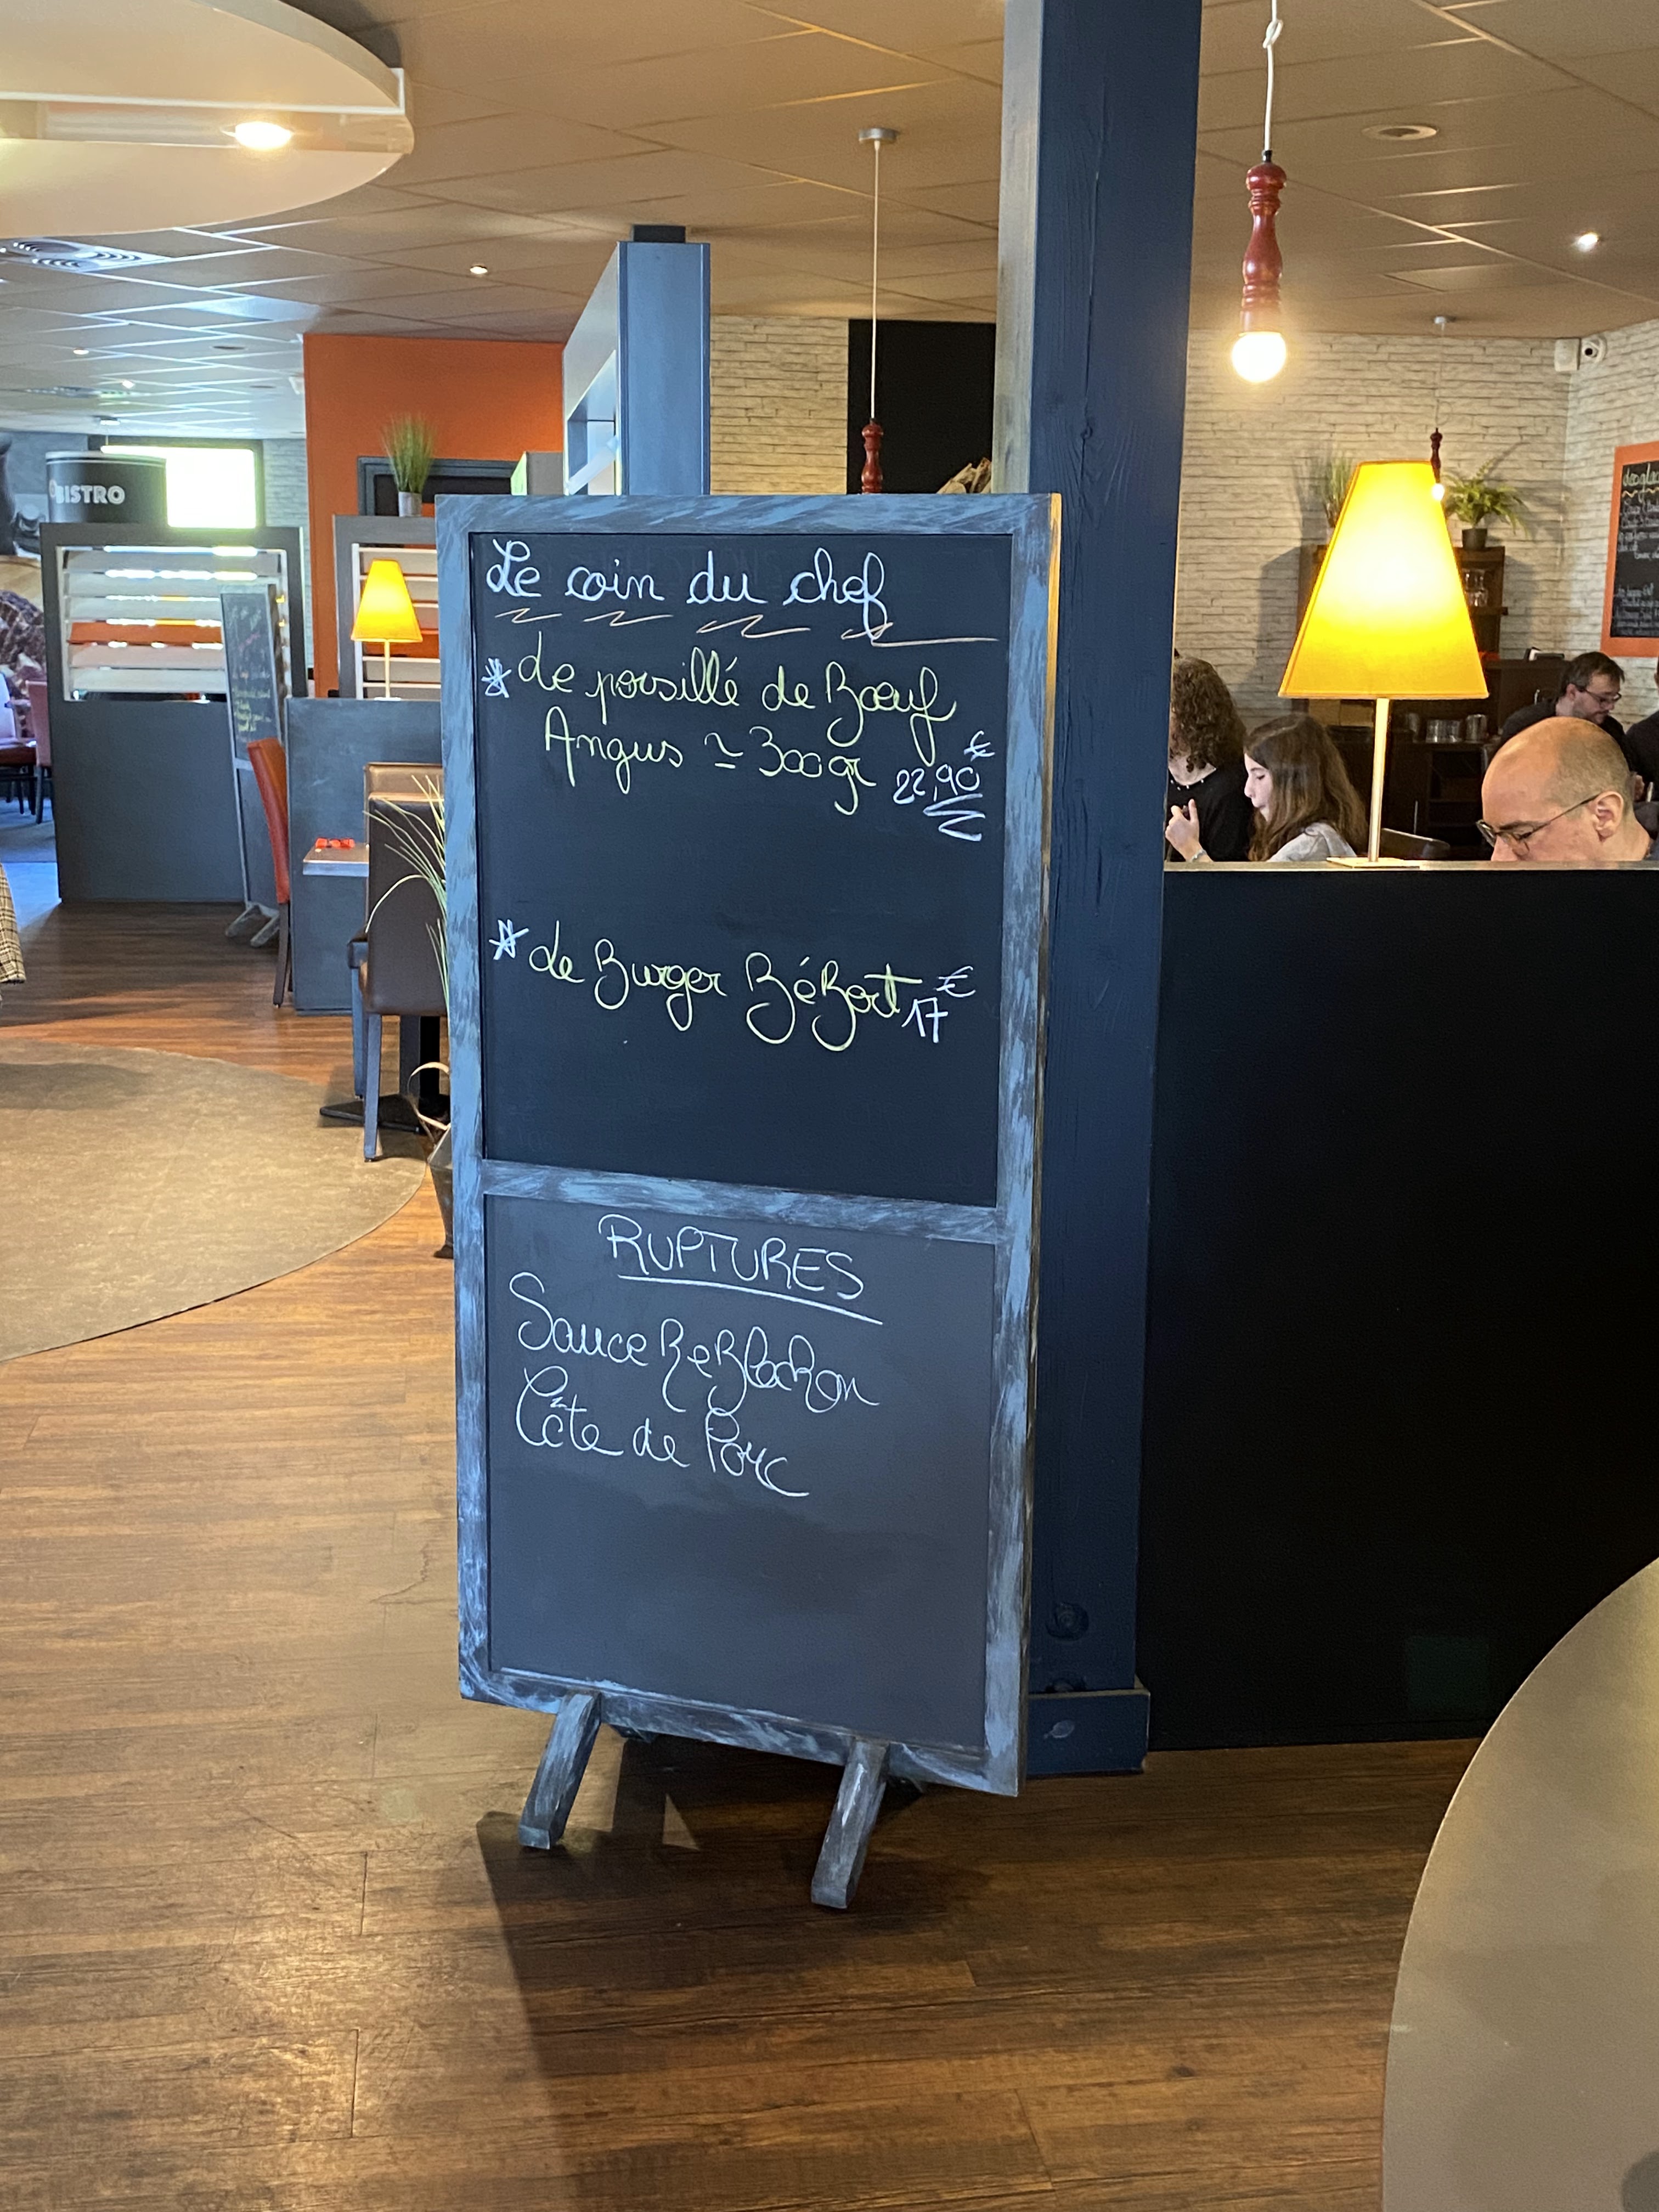 BISTRO
Le coin du chef
* Le persillé de Bœuf
Angus ≃ 300gr 22,90€
* Le Burger BéBert 17€
RUPTURES
Sauce ReBlochon
Côte de Porc